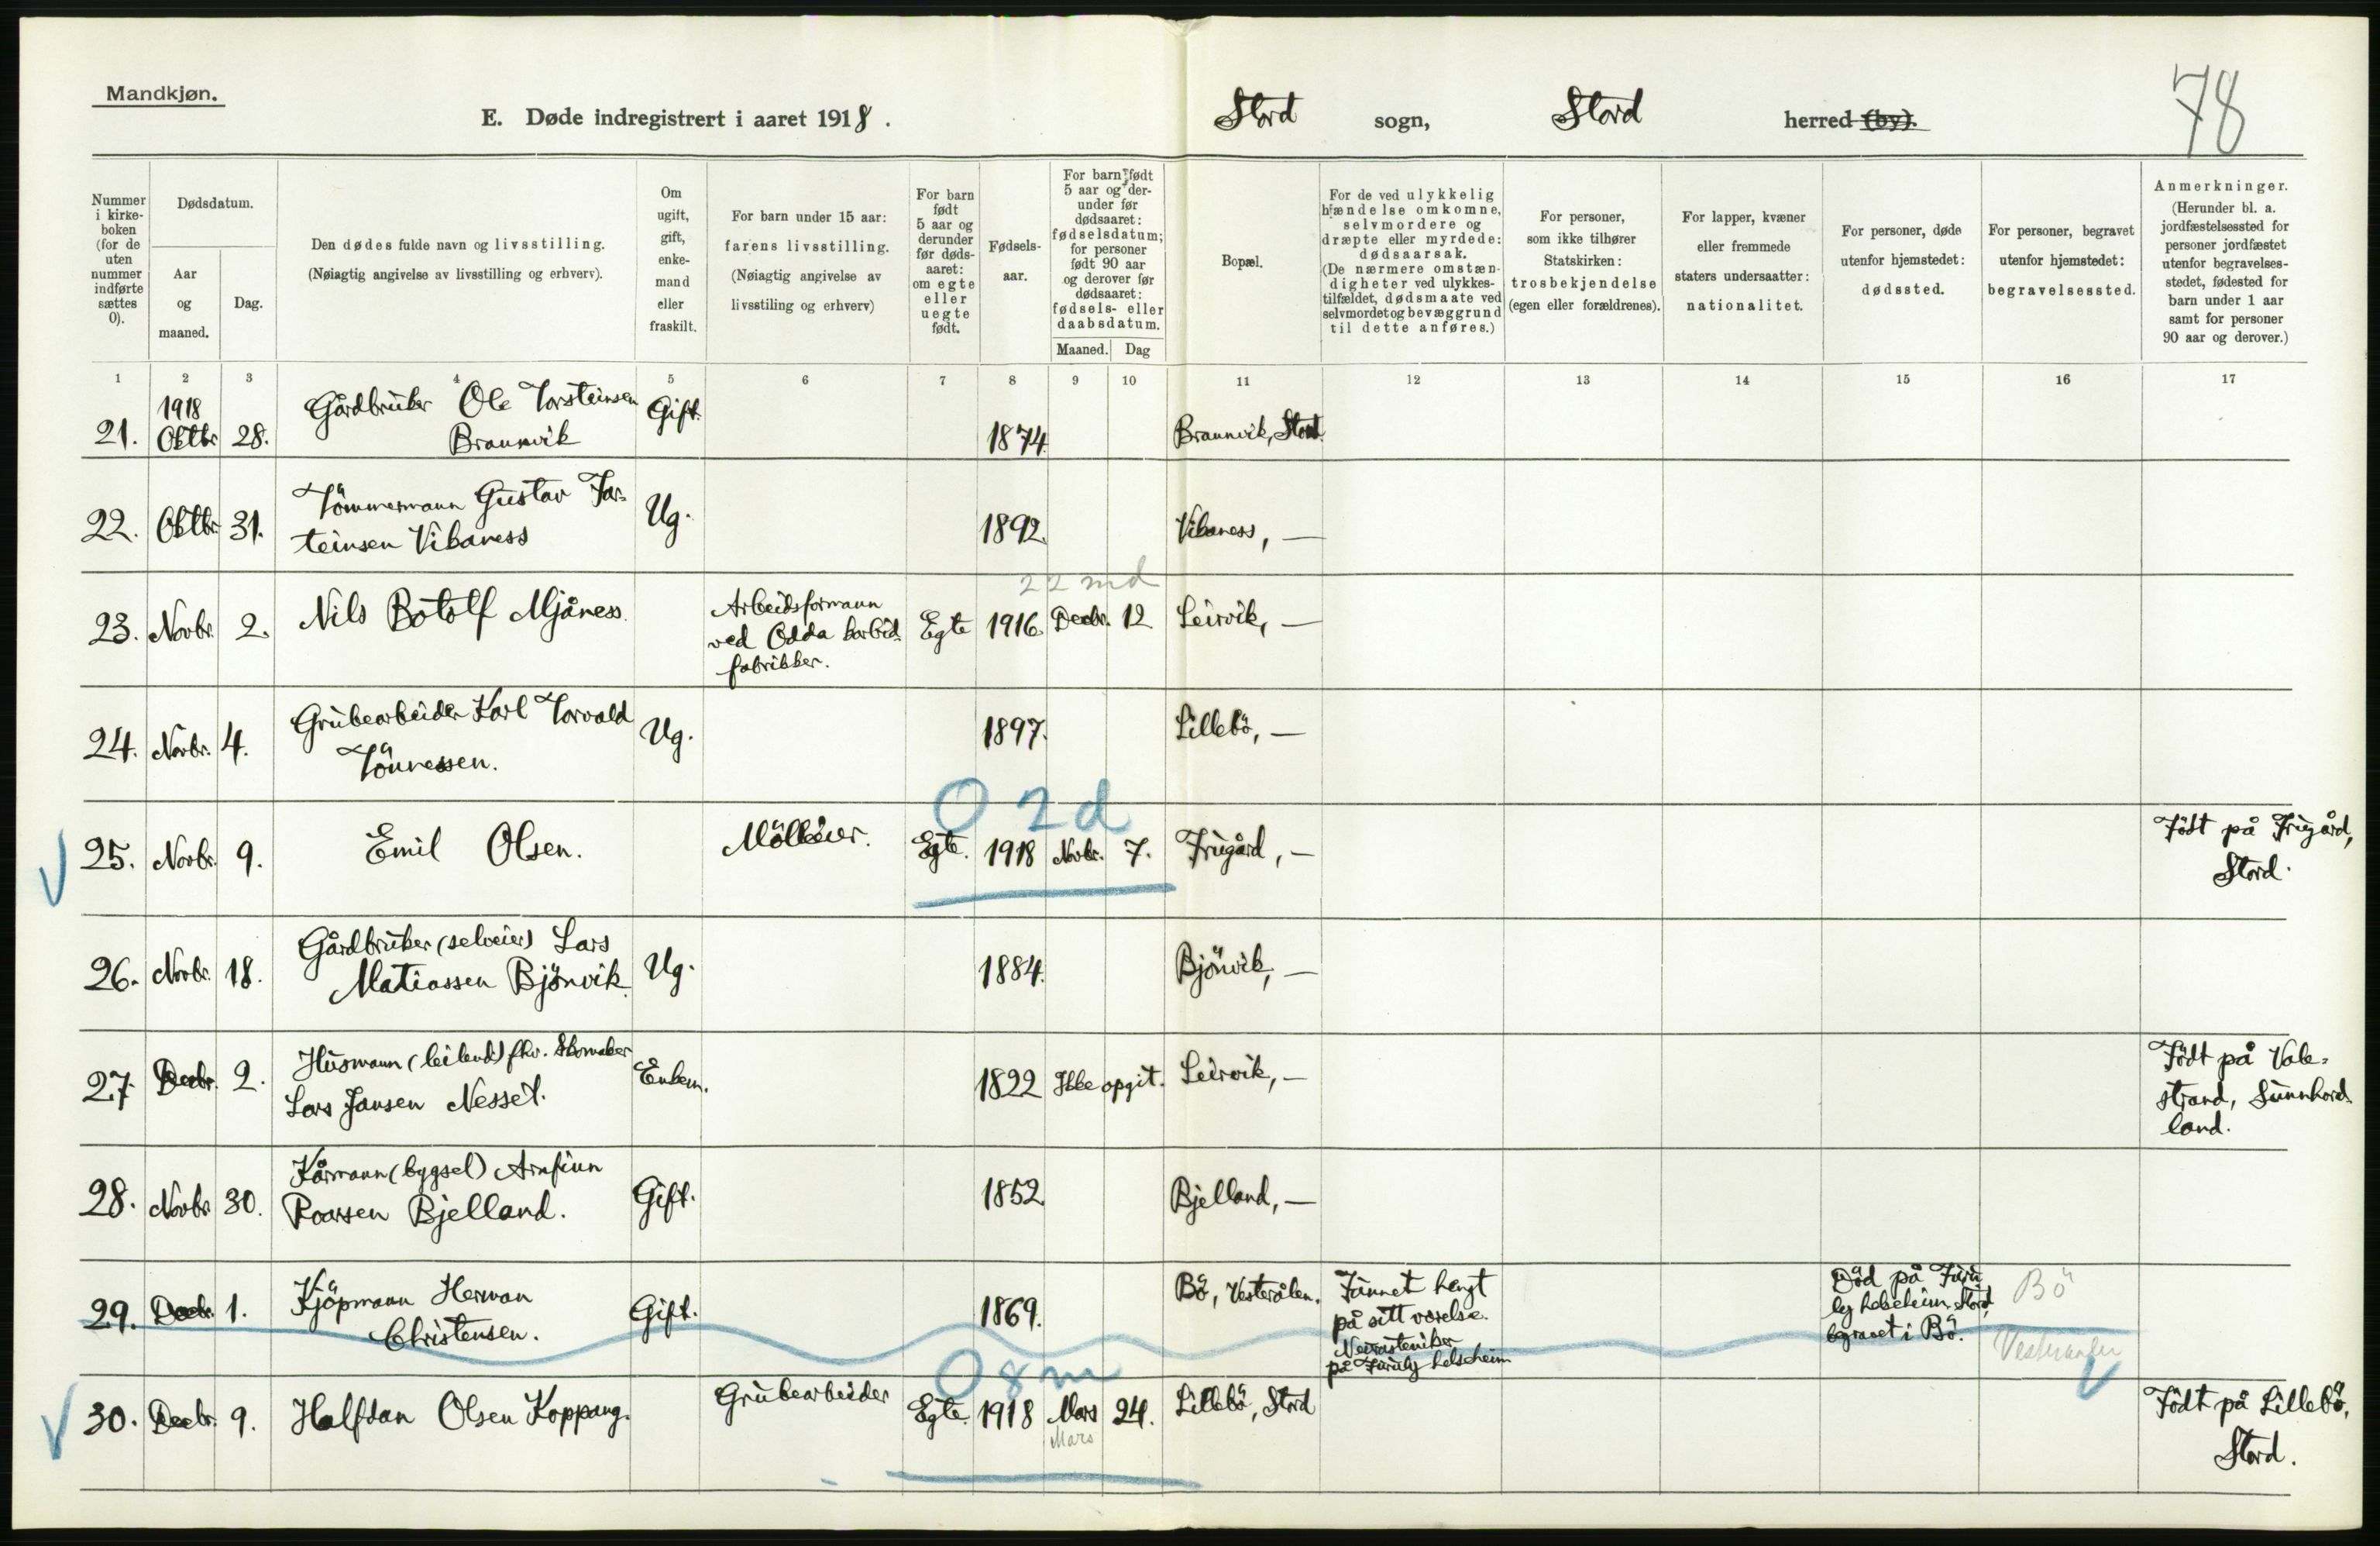 Mandkjøn.
E. Døde indregistrert i aaret 1918.
Stord sogn, Stord herred (by).
78
Nummer i kirke-boken (for de uten nummer indførte sættes 0).
Dødsdatum.
Aar og maaned.
Dag.
Den dødes fulde navn og livsstilling.
(Nøiagtig angivelse av livsstilling og erhverv).
Om ugift, gift, enke-mand eller fraskilt.
For barn under 15 aar: farens livsstilling.
(Nøiagtig angivelse av livsstiling og erhverv)
For barn født 5 aar og derunder før døds-aaret: om egte eller uegte født.
Fødsels-aar.
For barn født 5 aar og der-under før dødsaaret: fødselsdatum; for personer født 90 aar og derover før dødsaaret: fødsels- eller daabsdatum.
Maaned. Dag
Bopæl.
For de ved ulykkelig hændelse omkomne, selvmordere og dræpte eller myrdede: dødsaarsak.
(De nærmere omstæn-digheter ved ulykkes-tilfældet, dødsmaate ved selvmordet og bevæggrund til dette anføres.)
For personer, som ikke tilhører Statskirken: trosbekjendelse (egen eller forældrenes).
For lapper, kvæner eller fremmede staters undersaatter: nationalitet.
For personer, døde utenfor hjemstedet: dødssted.
For personer, begravet utenfor hjemstedet: begravelsessted.
Anmerkninger.
(Herunder bl. a. jordfæstelsessted for personer jordfæstet utenfor begravelses-stedet, fødested for barn under 1 aar samt for personer 90 aar og derover.)
1 2 3 4 5 6 7 8 9 10 11 12 13 14 15 16 17
1918
21. Oktbr 28. Gårdbruker Ole Torsteinsen Gift. 1874. Braunvik, Stord.
Braunvik
22. Oktbr 31. Tömmermann Gustav Tor- Ug. 1892. Vikaness, —
teinsen Vikaness
22 md
23. Novbr. 2. Nils Botolf Mjåness. Arbeidsformann Egte 1916. Decbr. 12 Leirvik, —
ved Odda karbid-
fabrikker.
24. Novbr. 4. Grubearbeider Karl Torvald Ug. 1897. Lillebö, —
Tönnessen.
0 2 d
25. Novbr. 9. Emil Olsen. Egte. 1918 Novbr. 7. Frugård, — Födt på Frugård,
Stord.
26. Novbr. 18. Gårdbruker (selveier) Lars Ug. 1884. Bjönvik, —
Matiassen Bjönvik.
27. Decbr. 2. Husmann (leilend) fhv. Skomaker Enkem. 1822 Ikke opgit. Leirvik, — Födt på Vale-
Lars Jansen Nesset. strand, Sunnhord-
land.
28. Novbr 30. Kårmann (bygsel) Arnfinn Gift. 1852. Bjelland, —
Roarsen Bjelland.
29. Decbr. 1. Kjöpmann Herman Gift. 1869. Bö, Vesterålen. Funnet hengt Död på Furu- Bö
Christensen. på sitt værelse. ly helseheim, Stord,
Nevrasteniker begravet i Bö. Vesteraalen
på Furuly helseheim
0 8 m
30. Decbr. 9. Halfdan Olsen Koppang. Grubearbeider Egte. 1918 Mars 24. Lillebö, Stord Födt på Lillebö,
Mars Stord.